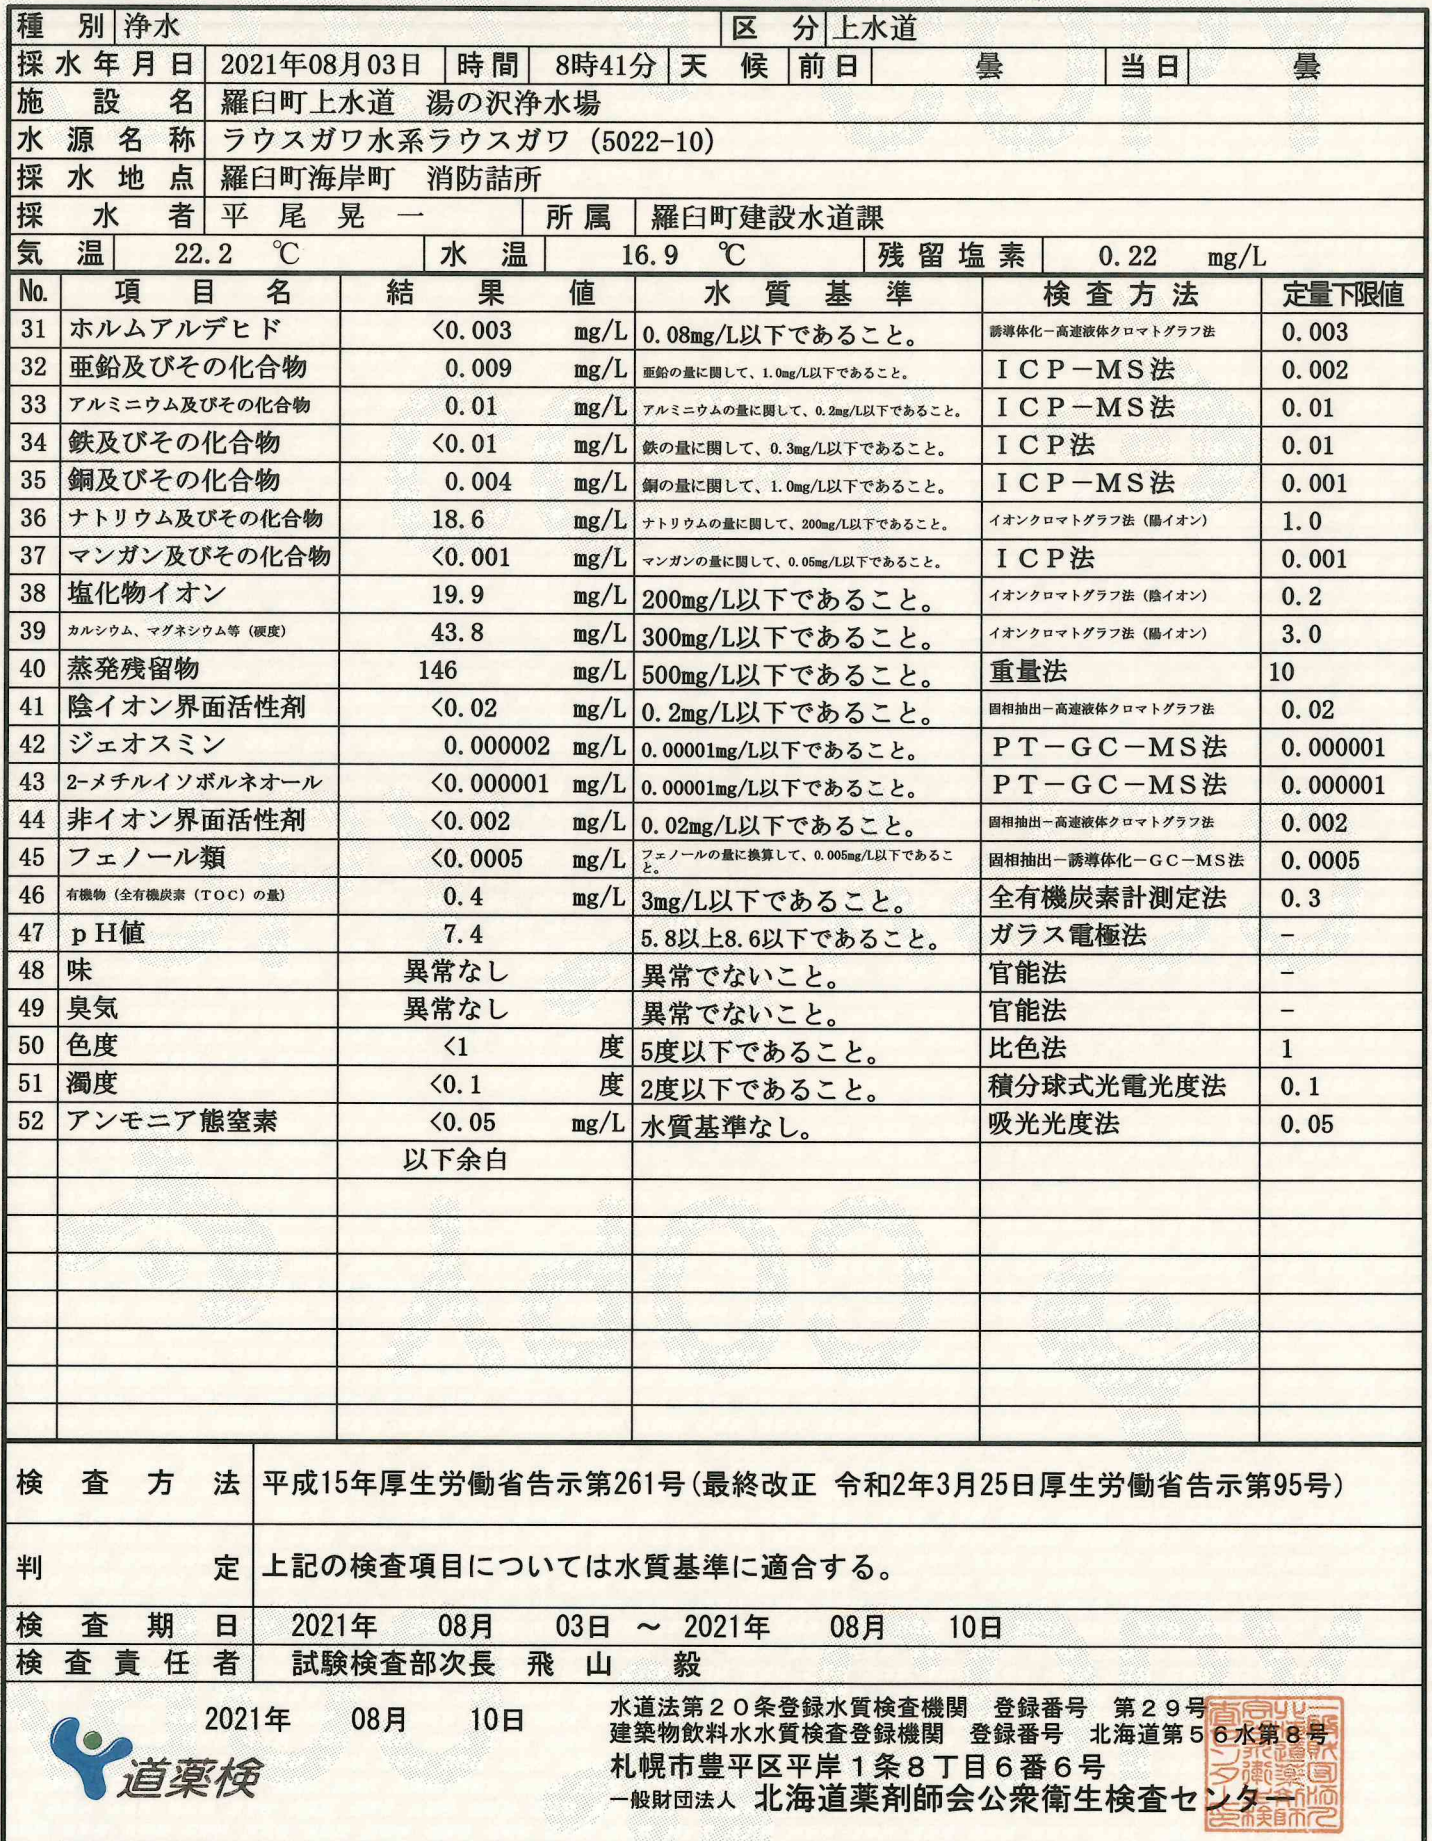 種 別 浄水 区 分 上水道
採水年月日 2021年08月03日 時間 8時41分 天 候 前日 曇 当日 曇
施 設 名 羅臼町上水道 湯の沢浄水場
水 源 名 称 ラウスガワ水系ラウスガワ（5022-10）
採 水 地 点 羅臼町海岸町 消防詰所
採 水 者 平 尾 晃 一 所属 羅臼町建設水道課
気 温 22.2 ℃ 水 温 16.9 ℃ 残留塩素 0.22 mg/L
No. 項 目 名 結 果 値 水 質 基 準 検 査 方 法 定量下限値
31 ホルムアルデヒド <0.003 mg/L 0.08mg/L以下であること。 誘導体化－高速液体クロマトグラフ法 0.003
32 亜鉛及びその化合物 0.009 mg/L 亜鉛の量に関して、1.0mg/L以下であること。 ＩＣＰ－ＭＳ法 0.002
33 アルミニウム及びその化合物 0.01 mg/L アルミニウムの量に関して、0.2mg/L以下であること。 ＩＣＰ－ＭＳ法 0.01
34 鉄及びその化合物 <0.01 mg/L 鉄の量に関して、0.3mg/L以下であること。 ＩＣＰ法 0.01
35 銅及びその化合物 0.004 mg/L 銅の量に関して、1.0mg/L以下であること。 ＩＣＰ－ＭＳ法 0.001
36 ナトリウム及びその化合物 18.6 mg/L ナトリウムの量に関して、200mg/L以下であること。 イオンクロマトグラフ法（陽イオン） 1.0
37 マンガン及びその化合物 <0.001 mg/L マンガンの量に関して、0.05mg/L以下であること。 ＩＣＰ法 0.001
38 塩化物イオン 19.9 mg/L 200mg/L以下であること。 イオンクロマトグラフ法（陰イオン） 0.2
39 カルシウム、マグネシウム等（硬度） 43.8 mg/L 300mg/L以下であること。 イオンクロマトグラフ法（陽イオン） 3.0
40 蒸発残留物 146 mg/L 500mg/L以下であること。 重量法 10
41 陰イオン界面活性剤 <0.02 mg/L 0.2mg/L以下であること。 固相抽出－高速液体クロマトグラフ法 0.02
42 ジェオスミン 0.000002 mg/L 0.00001mg/L以下であること。 ＰＴ－ＧＣ－ＭＳ法 0.000001
43 2-メチルイソボルネオール <0.000001 mg/L 0.00001mg/L以下であること。 ＰＴ－ＧＣ－ＭＳ法 0.000001
44 非イオン界面活性剤 <0.002 mg/L 0.02mg/L以下であること。 固相抽出－高速液体クロマトグラフ法 0.002
45 フェノール類 <0.0005 mg/L フェノールの量に換算して、0.005mg/L以下であること。 固相抽出－誘導体化－ＧＣ－ＭＳ法 0.0005
46 有機物（全有機炭素（ＴＯＣ）の量） 0.4 mg/L 3mg/L以下であること。 全有機炭素計測定法 0.3
47 ｐＨ値 7.4 5.8以上8.6以下であること。 ガラス電極法 −
48 味 異常なし 異常でないこと。 官能法 −
49 臭気 異常なし 異常でないこと。 官能法 −
50 色度 <1 度 5度以下であること。 比色法 1
51 濁度 <0.1 度 2度以下であること。 積分球式光電光度法 0.1
52 アンモニア態窒素 <0.05 mg/L 水質基準なし。 吸光光度法 0.05
以下余白
検 査 方 法 平成15年厚生労働省告示第261号(最終改正 令和2年3月25日厚生労働省告示第95号)
判 定 上記の検査項目については水質基準に適合する。
検 査 期 日 2021年 08月 03日 ～ 2021年 08月 10日
検査責任者 試験検査部次長 飛 山 毅
2021年 08月 10日
水道法第２０条登録水質検査機関 登録番号 第２９号
建築物飲料水水質検査登録機関 登録番号 北海道第５６水第８号
札幌市豊平区平岸１条８丁目６番６号
一般財団法人 北海道薬剤師会公衆衛生検査センター
道薬検
COPY